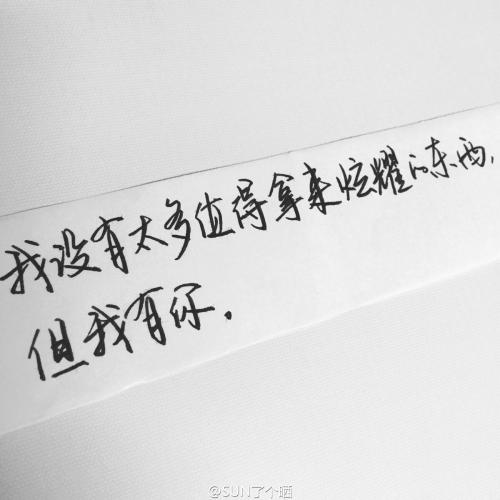 我没有太多值得拿来炫耀的东西,
但我有你.
@SUN了个晒